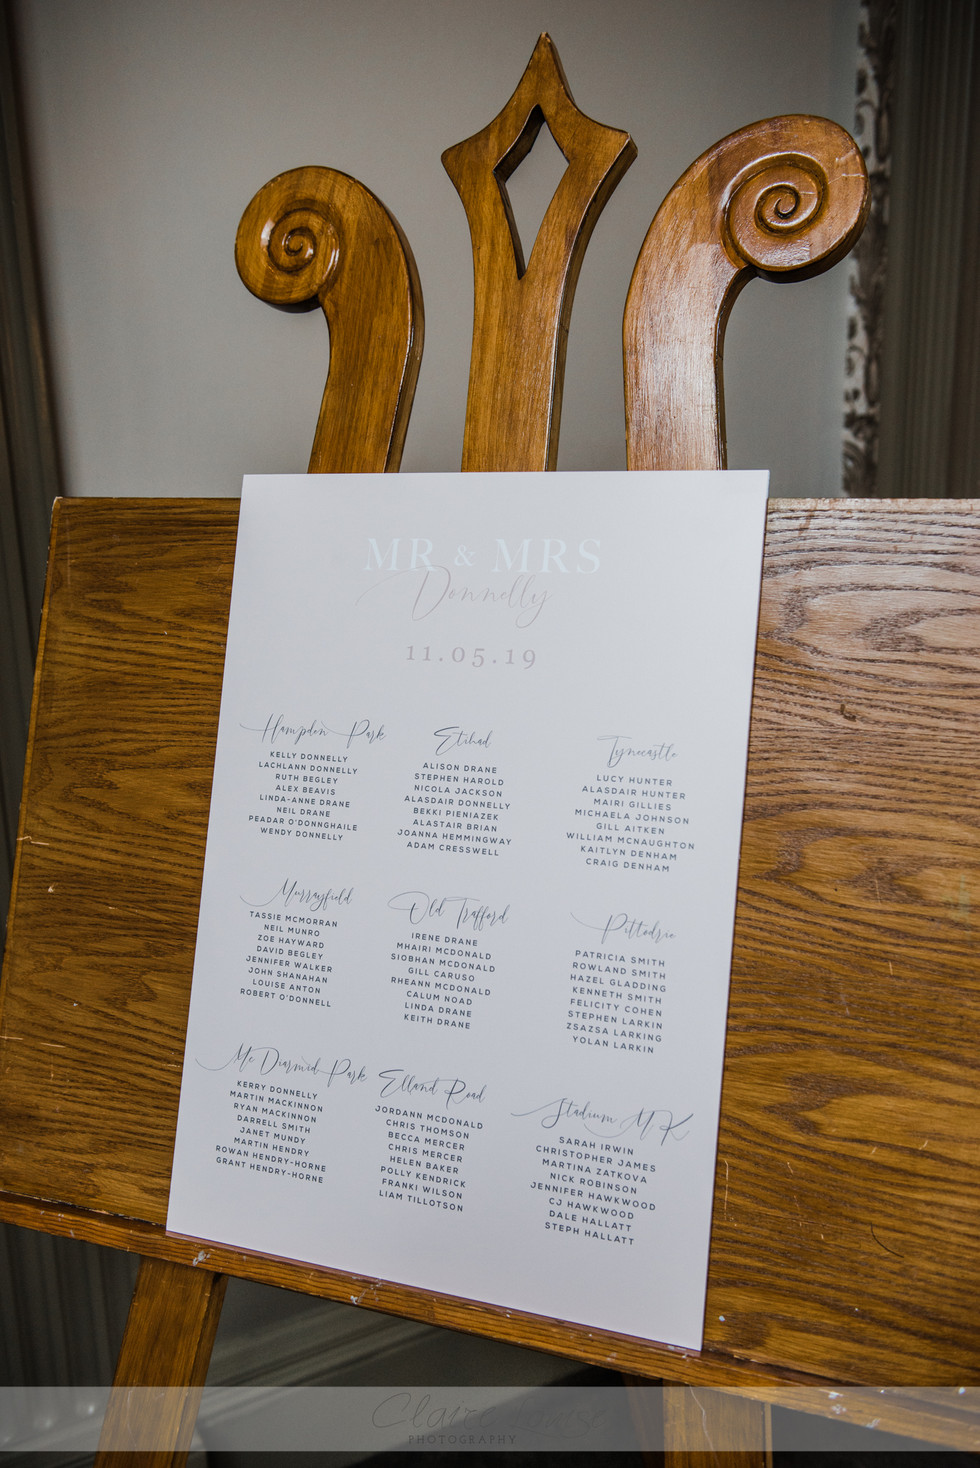 MR & MRS
Donnelly
11.05.19
Hampden Park
KELLY DONNELLY
LACHLANN DONNELLY
RUTH BEGLEY
ALEX BEAVIS
LINDA-ANNE DRANE
NEIL DRANE
PEADAR O'DONNGHAILE
WENDY DONNELLY
Etihad
ALISON DRANE
STEPHEN HAROLD
NICOLA JACKSON
ALASDAIR DONNELLY
BEKKI PIENIAZEK
ALASTAIR BRIAN
JOANNA HEMMINGWAY
ADAM CRESSWELL
Tynecastle
LUCY HUNTER
ALASDAIR HUNTER
MAIRI GILLIES
MICHAELA JOHNSON
GILL AITKEN
WILLIAM MCNAUGHTON
KAITLYN DENHAM
CRAIG DENHAM
Murrayfield
TASSIE MCMORRAN
NEIL MUNRO
ZOE HAYWARD
DAVID BEGLEY
JENNIFER WALKER
JOHN SHANAHAN
LOUISE ANTON
ROBERT O'DONNELL
Old Trafford
IRENE DRANE
MHAIRI MCDONALD
SIOBHAN MCDONALD
GILL CARUSO
RHEANN MCDONALD
CALUM NOAD
LINDA DRANE
KEITH DRANE
Pittodrie
PATRICIA SMITH
ROWLAND SMITH
HAZEL GLADDING
KENNETH SMITH
FELICITY COHEN
STEPHEN LARKIN
ZSAZSA LARKING
YOLAN LARKIN
Mc Diarmid Park
KERRY DONNELLY
MARTIN MACKINNON
RYAN MACKINNON
DARRELL SMITH
JANET MUNDY
MARTIN HENDRY
ROWAN HENDRY-HORNE
GRANT HENDRY-HORNE
Elland Road
JORDANN MCDONALD
CHRIS THOMSON
BECCA MERCER
CHRIS MERCER
HELEN BAKER
POLLY KENDRICK
FRANKI WILSON
LIAM TILLOTSON
Stadium MK
SARAH IRWIN
CHRISTOPHER JAMES
MARTINA ZATKOVA
NICK ROBINSON
JENNIFER HAWKWOOD
CJ HAWKWOOD
DALE HALLATT
STEPH HALLATT
Claire Louise
PHOTOGRAPHY